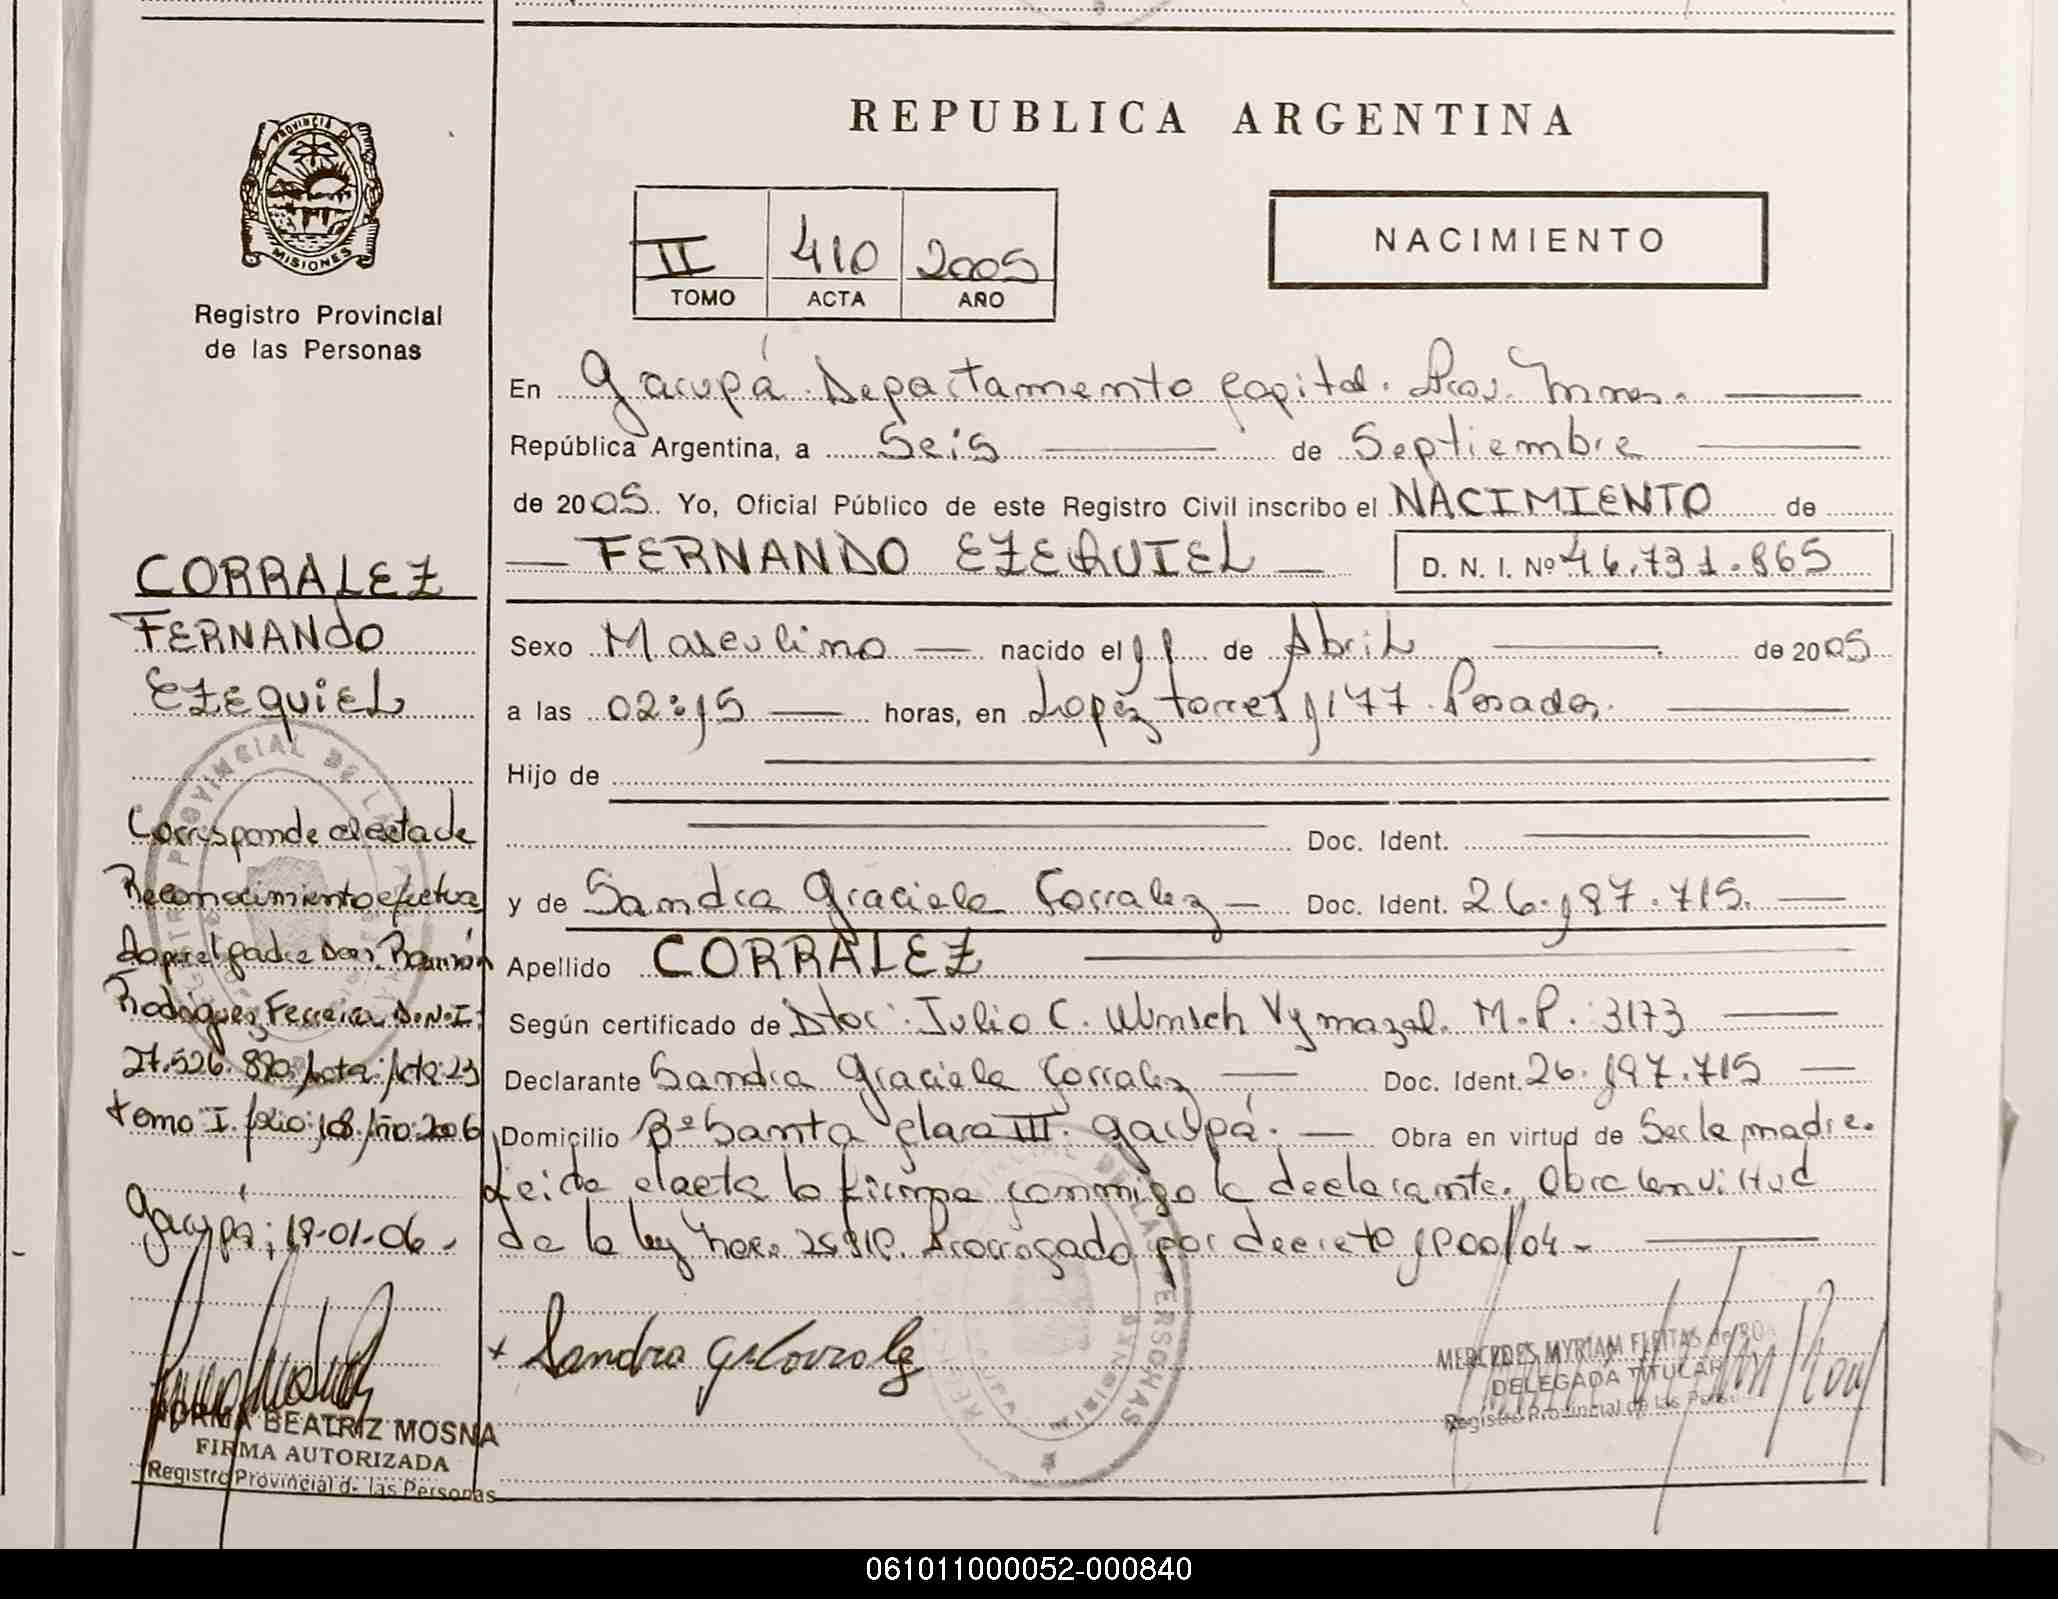 PROVINCIA D
MISIONES
Registro Provincial
de las Personas
REPUBLICA ARGENTINA
II 410 2005
TOMO ACTA AÑO
NACIMIENTO
En Garupá. Departamento Capital. Pcia. Mnes.
República Argentina, a Seis de Septiembre
de 2005. Yo, Oficial Público de este Registro Civil inscribo el NACIMIENTO de
FERNANDO EZEQUIEL D. N. I. Nº 46.731.865
Sexo Masculino nacido el 11 de Abril de 2005
a las 02:15 horas, en Lopez torres 1177. Posadas.
Hijo de
Doc. Ident.
y de Sandra Graciela Corralez Doc. Ident. 26.197.715.
Apellido CORRALEZ
Según certificado de Dtor: Julio C. Wunsch Vymazal. M.P.: 3173
Declarante Sandra Graciela Corralez Doc. Ident. 26.197.715
Domicilio Bº Santa Clara III. Garupá. Obra en virtud de Ser la madre.
Leida el acta la firma conmigo la declarante. Obra en virtud
de la ley Nro. Prorrogado por decreto
Sandra G. Corralez
MERCEDES MYRIAM FLEITAS de
DELEGADA TITULAR
Registro Provincial de las Pers
CORRALEZ
FERNANDO
EZEQUIEL
Corresponde al acta de
Reconocimiento efectua
do por el padre Don: Ramón
Rodriguez Ferreira D.N.I:
27.526.890. Acta: 23
tomo: I. folio: 18. Año: 2006
Garupá; 19-01-06.
NORMA BEATRIZ MOSNA
FIRMA AUTORIZADA
Registro Provincial d. las Personas
061011000052-000840